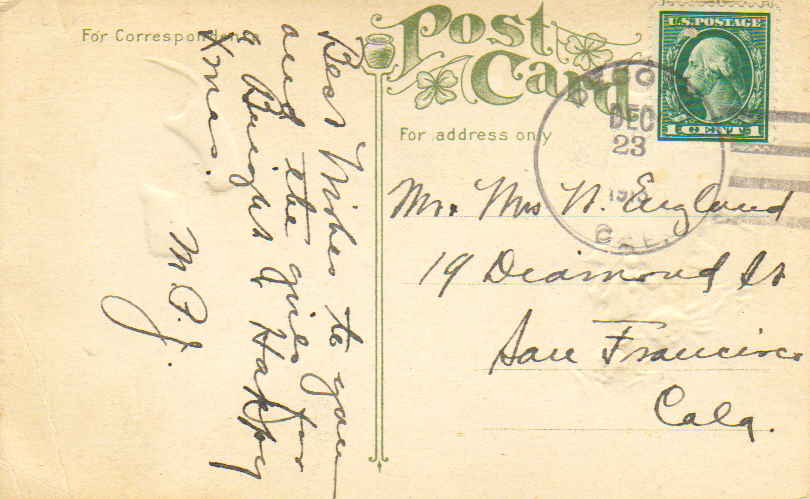 For Correspondence
Post Card
For address only
U.S. POSTAGE
1 CENT 1
DEC
23
CAL.
Best Wishes to you
and the girls for
a Bright & Happy
Xmas.
M.P.J.
Mr. Mrs N. England
19 Diamond St
San Francisco
Cala.